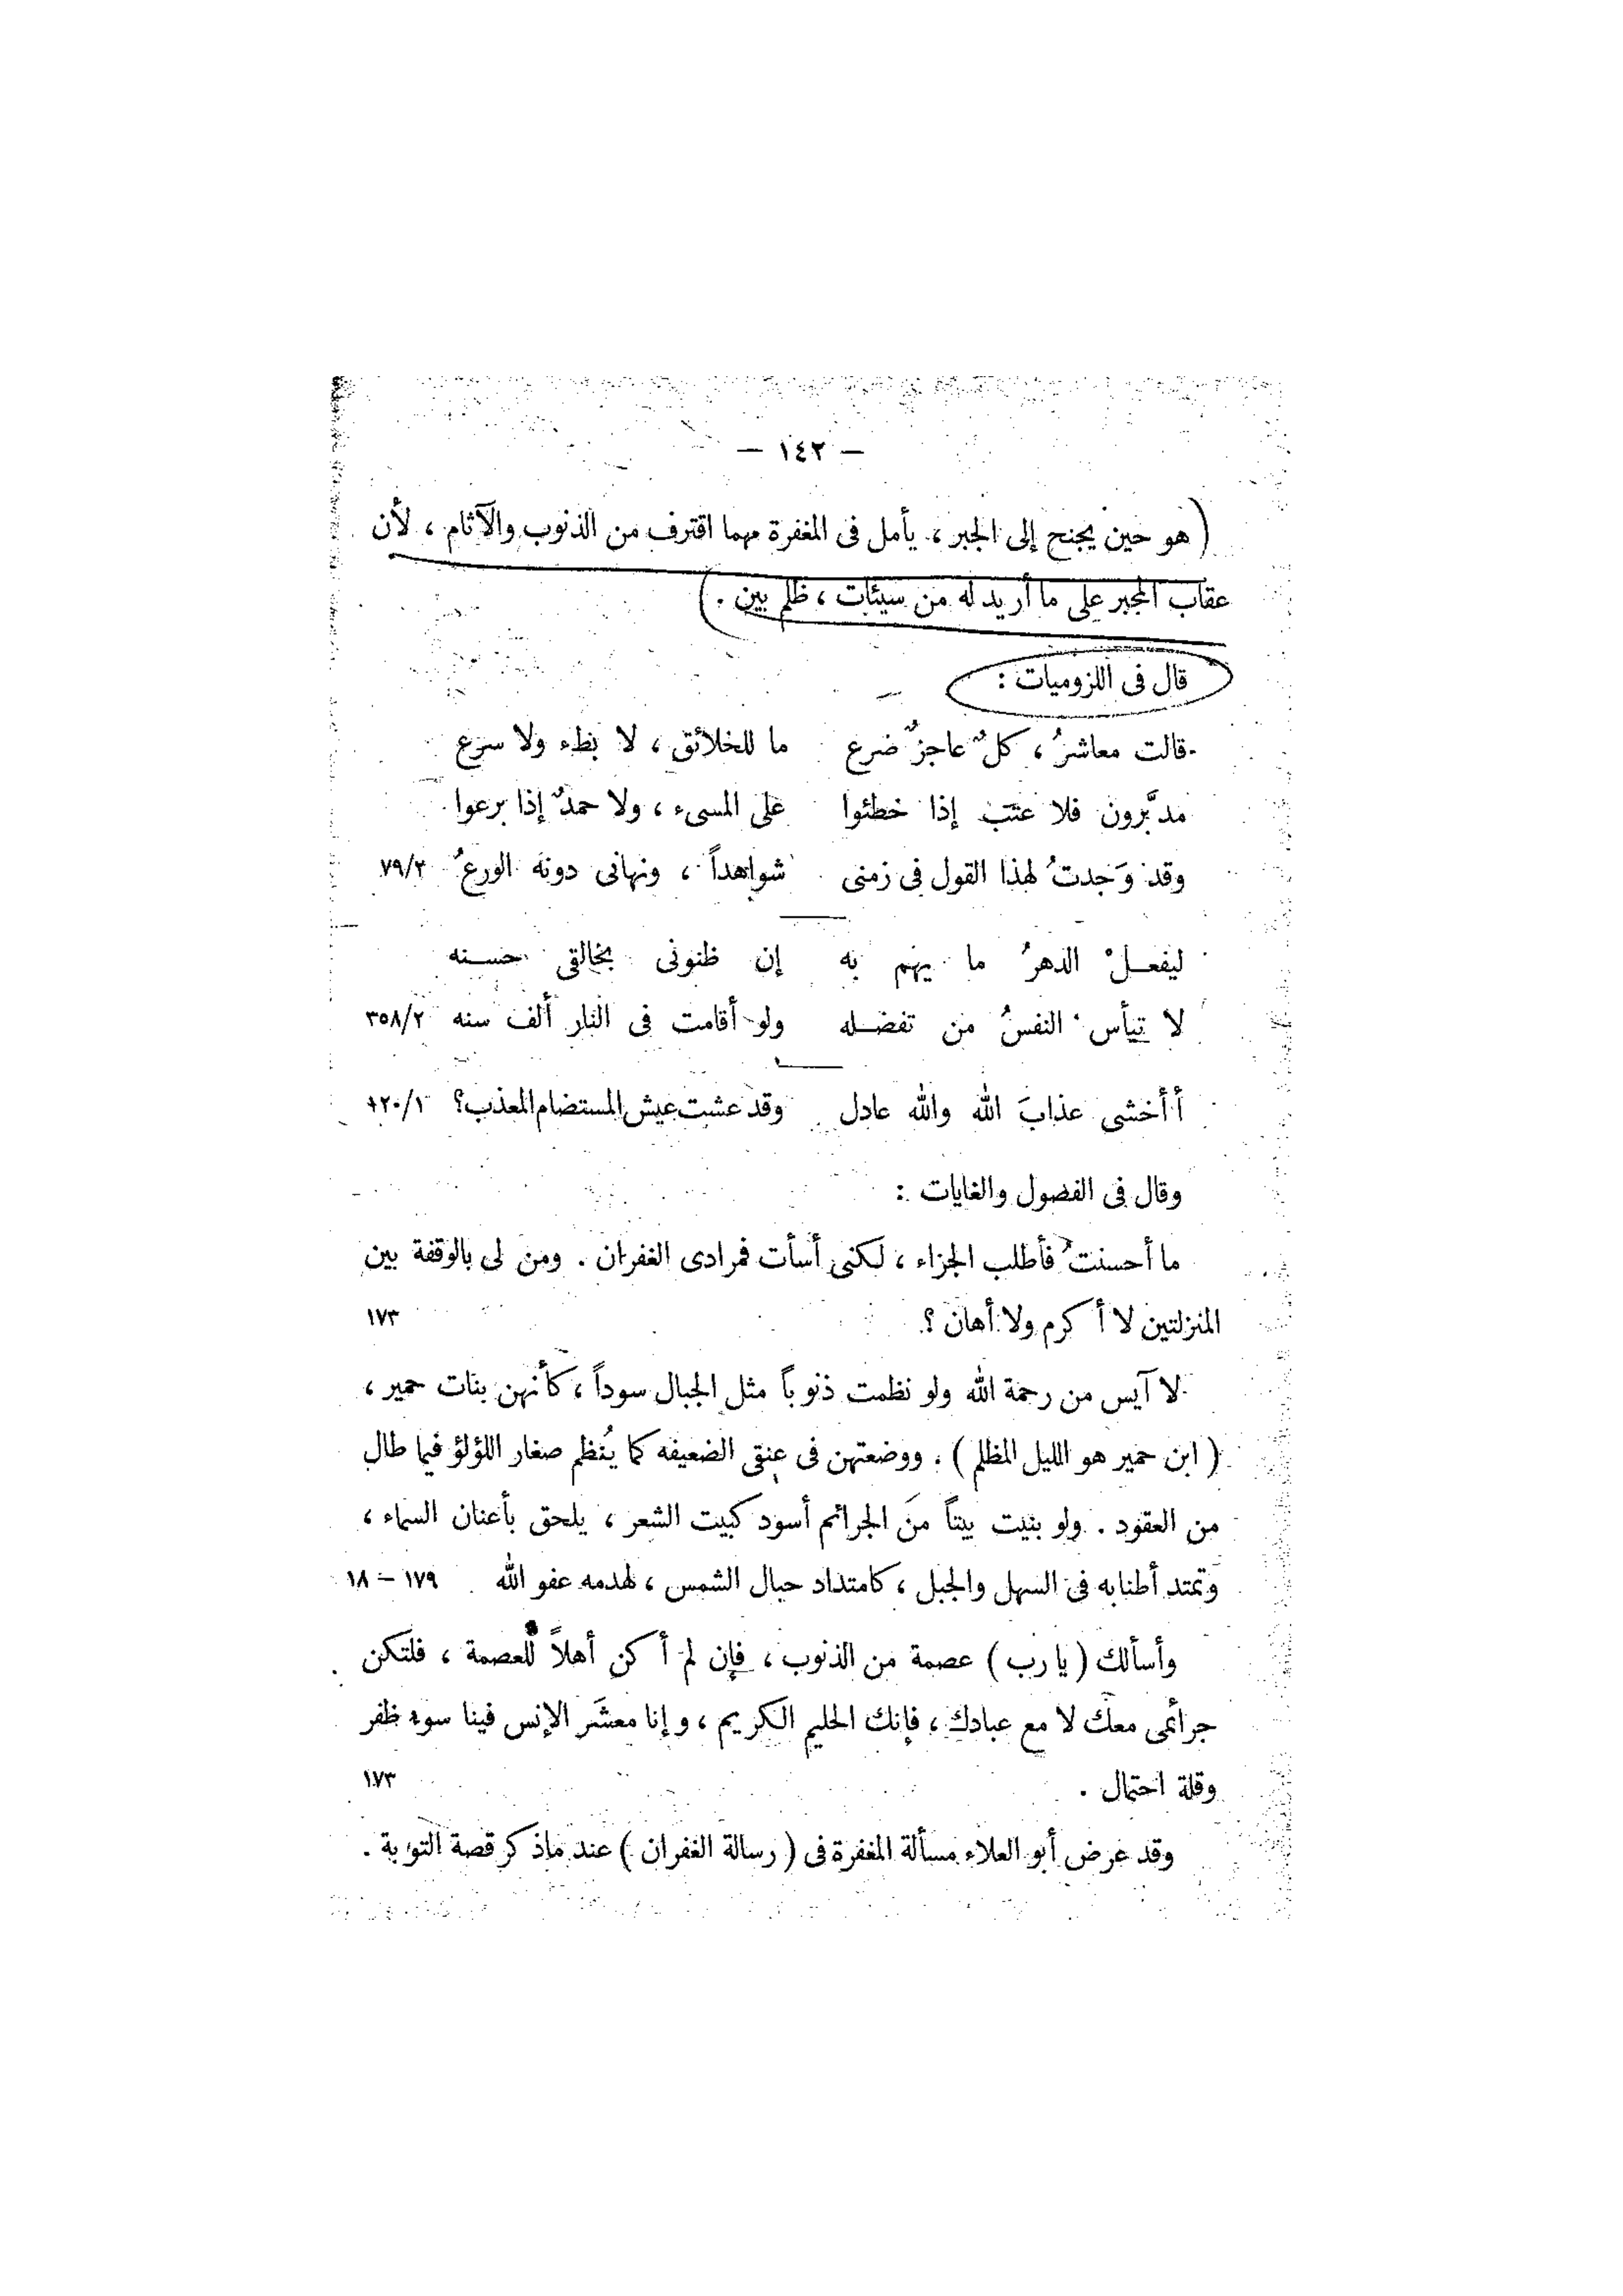 — ١٤٢ —
( هو حين يجنح إلى الجبر ، يأمل فى المغفرة مهما اقترف من الذنوب والآثام ، لأن
عقاب المجبر على ما أريد له من سيئات ، ظلم بين . )
قال فى اللزوميات :
قالت معاشرُ ، كلٌ عاجزٌ ضرع ما للخلائق ، لا بطء ولا سرع
مدبَّرون فلا عتب إذا خطئوا على المسىء ، ولا حمدٌ إذا برعوا
وقد وَجدتُ لهذا القول فى زمنى شواهداً ، ونهانى دونه الورعُ ٧٩/٢
ليفعـلْ الدهرُ ما يهم به إن ظنونى بخالقى حسـنه
لا تيأس النفسُ من تفضـله ولو أقامت فى النار ألف سنه ٣٥٨/٢
أأخشى عذابَ الله والله عادل وقد عشت عيش المستضام المعذب؟ ١٢٠/١
وقال فى الفصول والغايات :
ما أحسنتُ فأطلب الجزاء ، لكنى أسأت فمرادى الغفران . ومن لى بالوقفة بين
المنزلتين لا أكرم ولا أهان ؟ ١٧٣
لا آيس من رحمة الله ولو نظمت ذنوباً مثل الجبال سوداً ، كأنهن بنات حمير ،
( ابن حمير هو الليل المظلم ) . ووضعتهن فى عنقى الضعيفه كما يُنظم صغار اللؤلؤ فيما طال
من العقود . ولو بنيت بيتاً منَ الجرائم أسود كبيت الشعر ، يلحق بأعنان السماء ،
وتمتد أطنابه فى السهل والجبل ، كامتداد حبال الشمس ، لهدمه عفو الله ١٧٩ – ١٨
وأسألك ( يا رب ) عصمة من الذنوب ، فإن لم أكن أهلاً للعصمة ، فلتكن
جرائمى معك لا مع عبادك ، فإنك الحليم الكريم ، وإنا معشَر الإنس فينا سوء ظفر
وقلة احتمال . ١٧٣
وقد عرض أبو العلاء مسألة المغفرة فى ( رسالة الغفران ) عند ماذكر قصة التوبة .